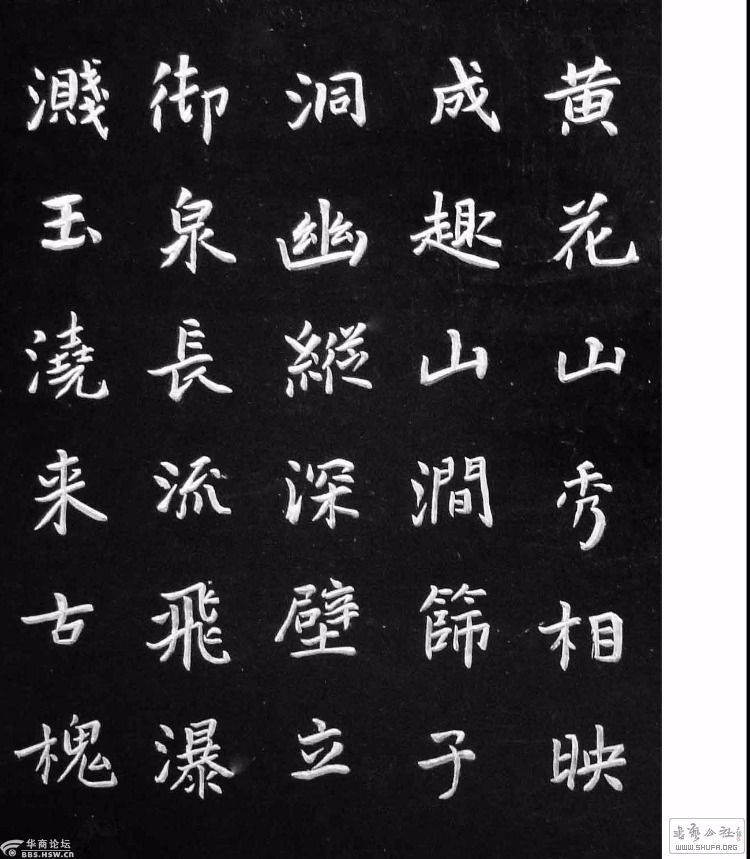 黄花山秀相映
成趣山澗篩子
洞幽縱深壁立
御泉長流飛瀑
濺玉澆来古槐
华商论坛
BBS.HSW.CN
WWW.SHUFA.ORG